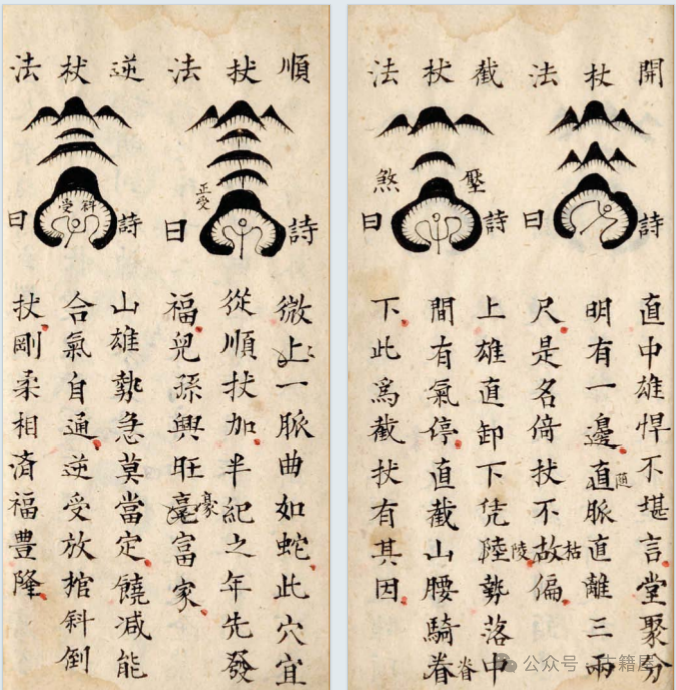 開杖法
詩曰
直中雄悍不堪言堂聚分
明有一邊直脈直離三兩
尺是名倚扙不故偏
枯
截杖法
壓煞
詩曰
上雄直卸下凭陸勢落中
陵
間有氣停直截山腰騎眷
脊
下此爲截扙有其因
順扙法
正受
詩曰
微上一脈曲如蛇此穴宜
從順扙加半紀之年先發
福兒孫興旺毫富家
豪
逆杖法
斜受
詩曰
山雄勢急莫當定饒减能
合氣自通逆受放棺斜倒
扙剛柔相済福豊隆
公众号·古籍屋